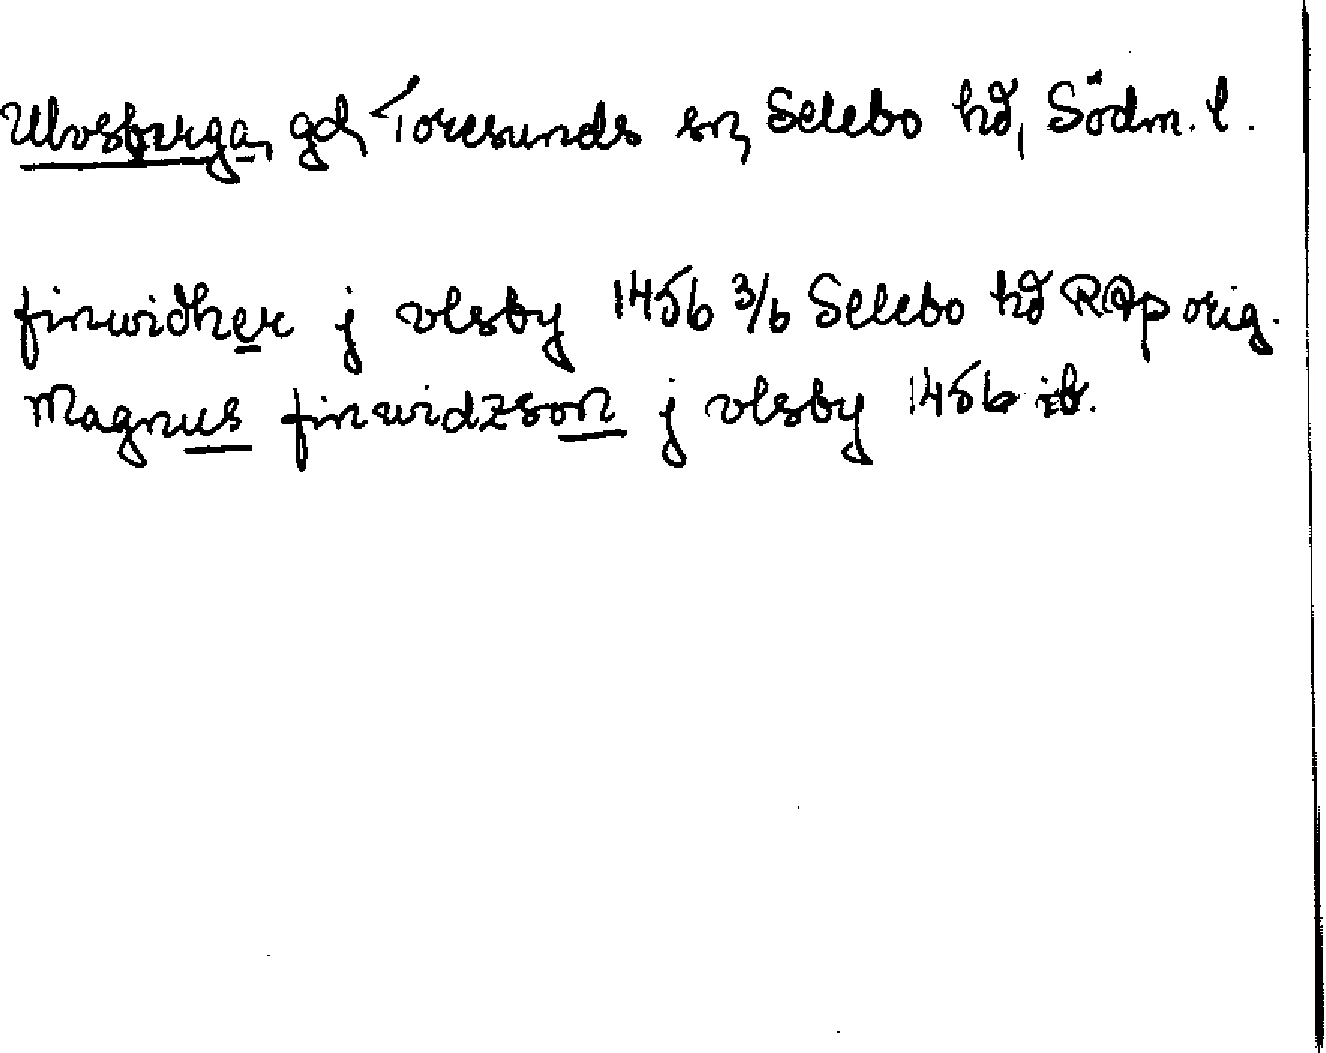 Ulvsberga, gd, Toresunds sn, Selebo hd, Södm. l.
finwidher j vlsby 1456 3/6 Selebo hd RAp orig.
Magnus finwidzson j vlsby 1456 ib.